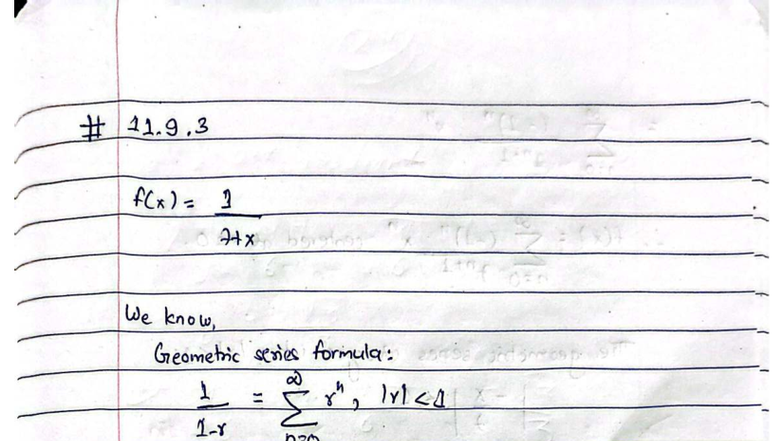 # 11.9.3
f(x) = 1
7+x
We know,
Geometric series formula:
1/(1-r) = ∞ Σ n=0 rⁿ, |r| < 1